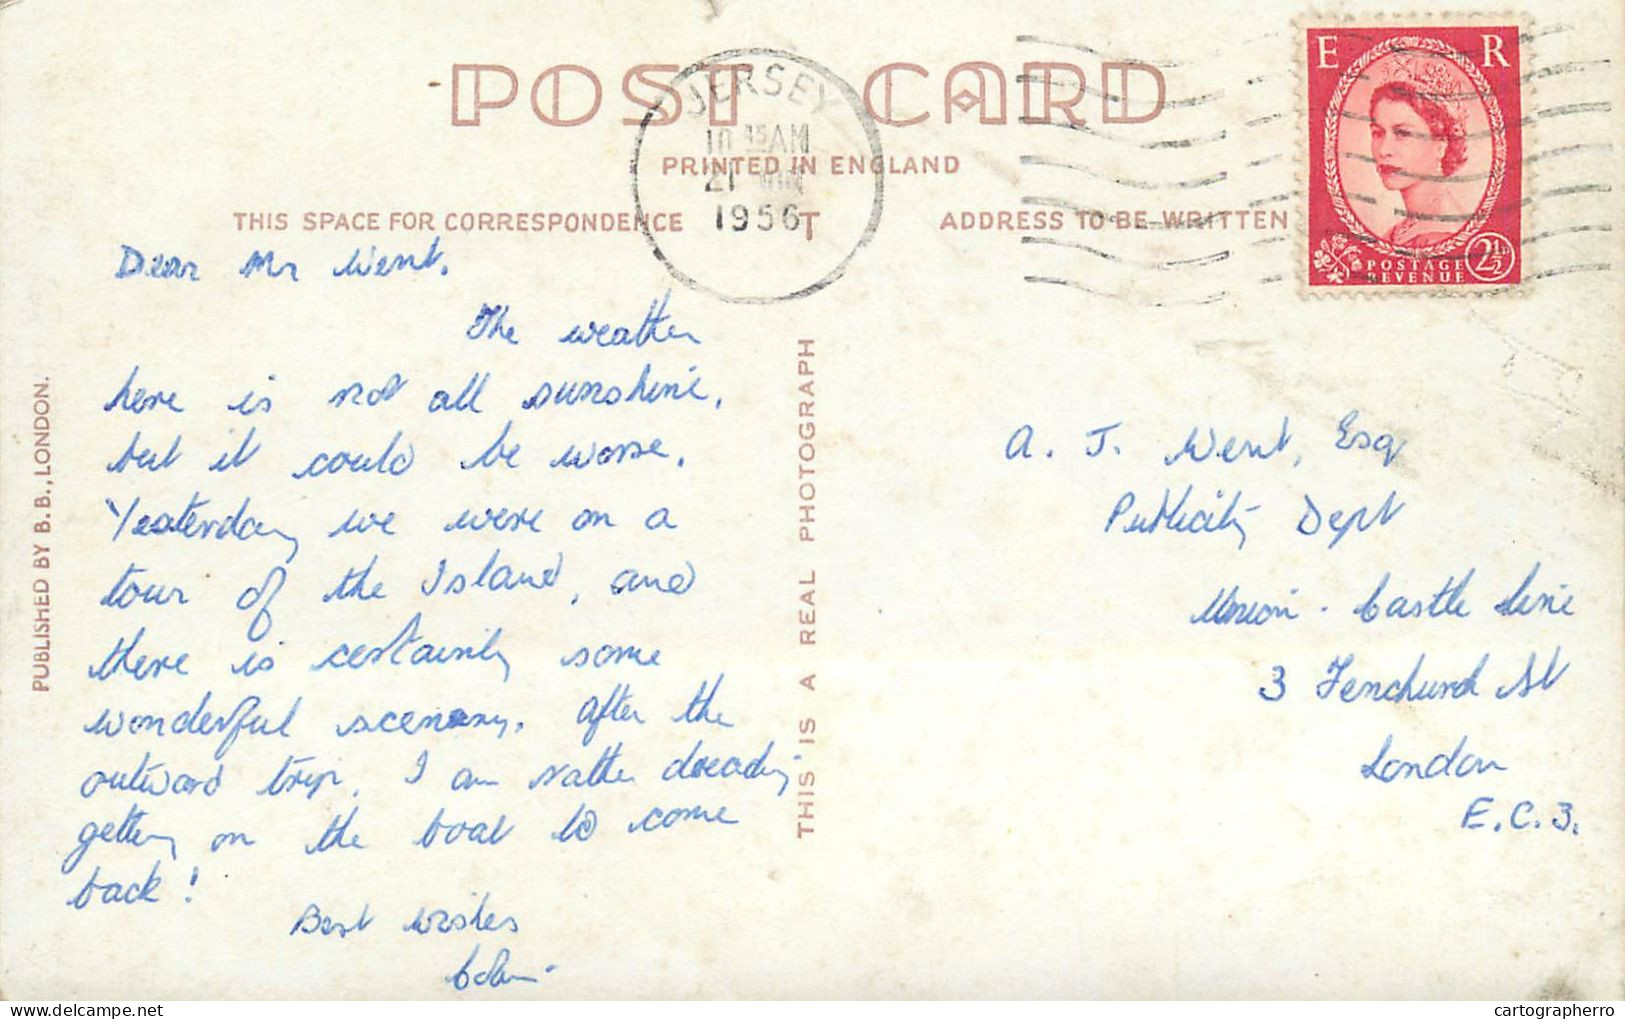 POST CARD
PRINTED IN ENGLAND
THIS SPACE FOR CORRESPONDENCE
ADDRESS TO BE WRITTEN
JERSEY
10 15 AM
21
1956
T
E R
POSTAGE
REVENUE
2½D
PUBLISHED BY B.B., LONDON.
THIS IS A REAL PHOTOGRAPH
Dear Mr Went.
The weather
here is not all sunshine,
but it could be worse.
Yesterday we were on a
tour of the Island, and
there is certainly some
wonderful scenery. After the
outward trip, I am rather dreading
getting on the boat to come
back!
Best wishes
Colin
A. J. Went, Esq
Publicity Dept
Union-Castle Line
3 Fenchurch St
London
E.C.3.
cartographerro